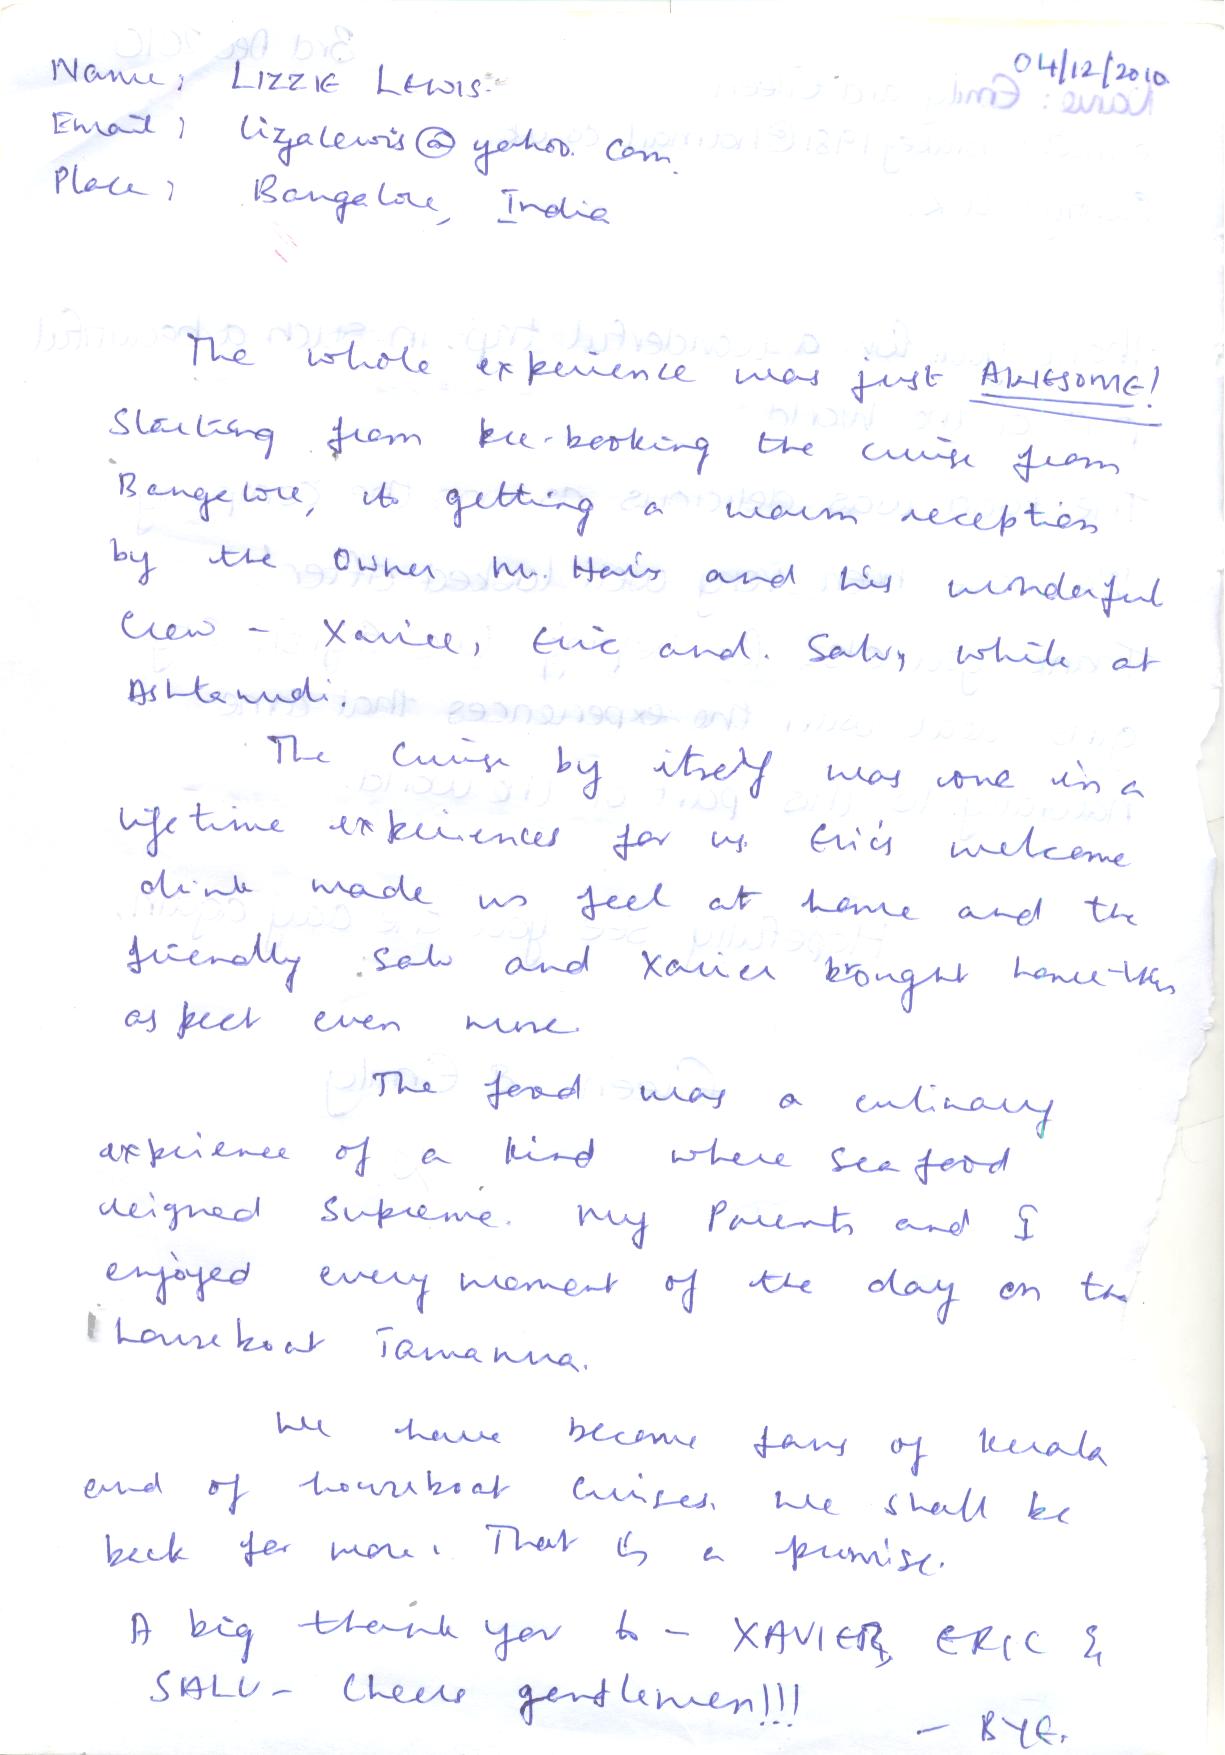 04/12/2010
Name: LIZZIE LEWIS
Email: lizzalewis@yahoo.com.
Place: Bangalore, India
The whole experience was just AWESOME!
Starting from pre-booking the cruise from
Bangalore, to getting a warm reception
by the Owner Mr. Haris and his wonderful
Crew - Xavier, Eric and. Salu, while at
Ashtamudi.
The Cruise by itself was one in a
lifetime experiences for us. Eric's welcome
drink made us feel at home and the
friendly Salu and Xavier brought home-like
aspect even more.
The food was a culinary
experience of a kind where sea food
reigned supreme. My Parents and I
enjoyed every moment of the day on the
houseboat Tamanna.
We have become fans of Kerala
and of houseboat cruises. We shall be
back for more. That is a promise.
A big thank you to - XAVIER, ERIC &
SALU - Cheers gentlemen!!!
- BYE.